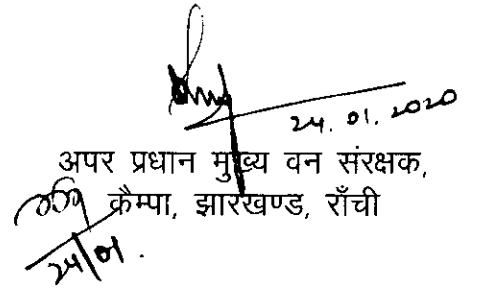 24.01.2020
अपर प्रधान मुख्य वन संरक्षक,
कैम्पा, झारखण्ड, राँची
24/01.